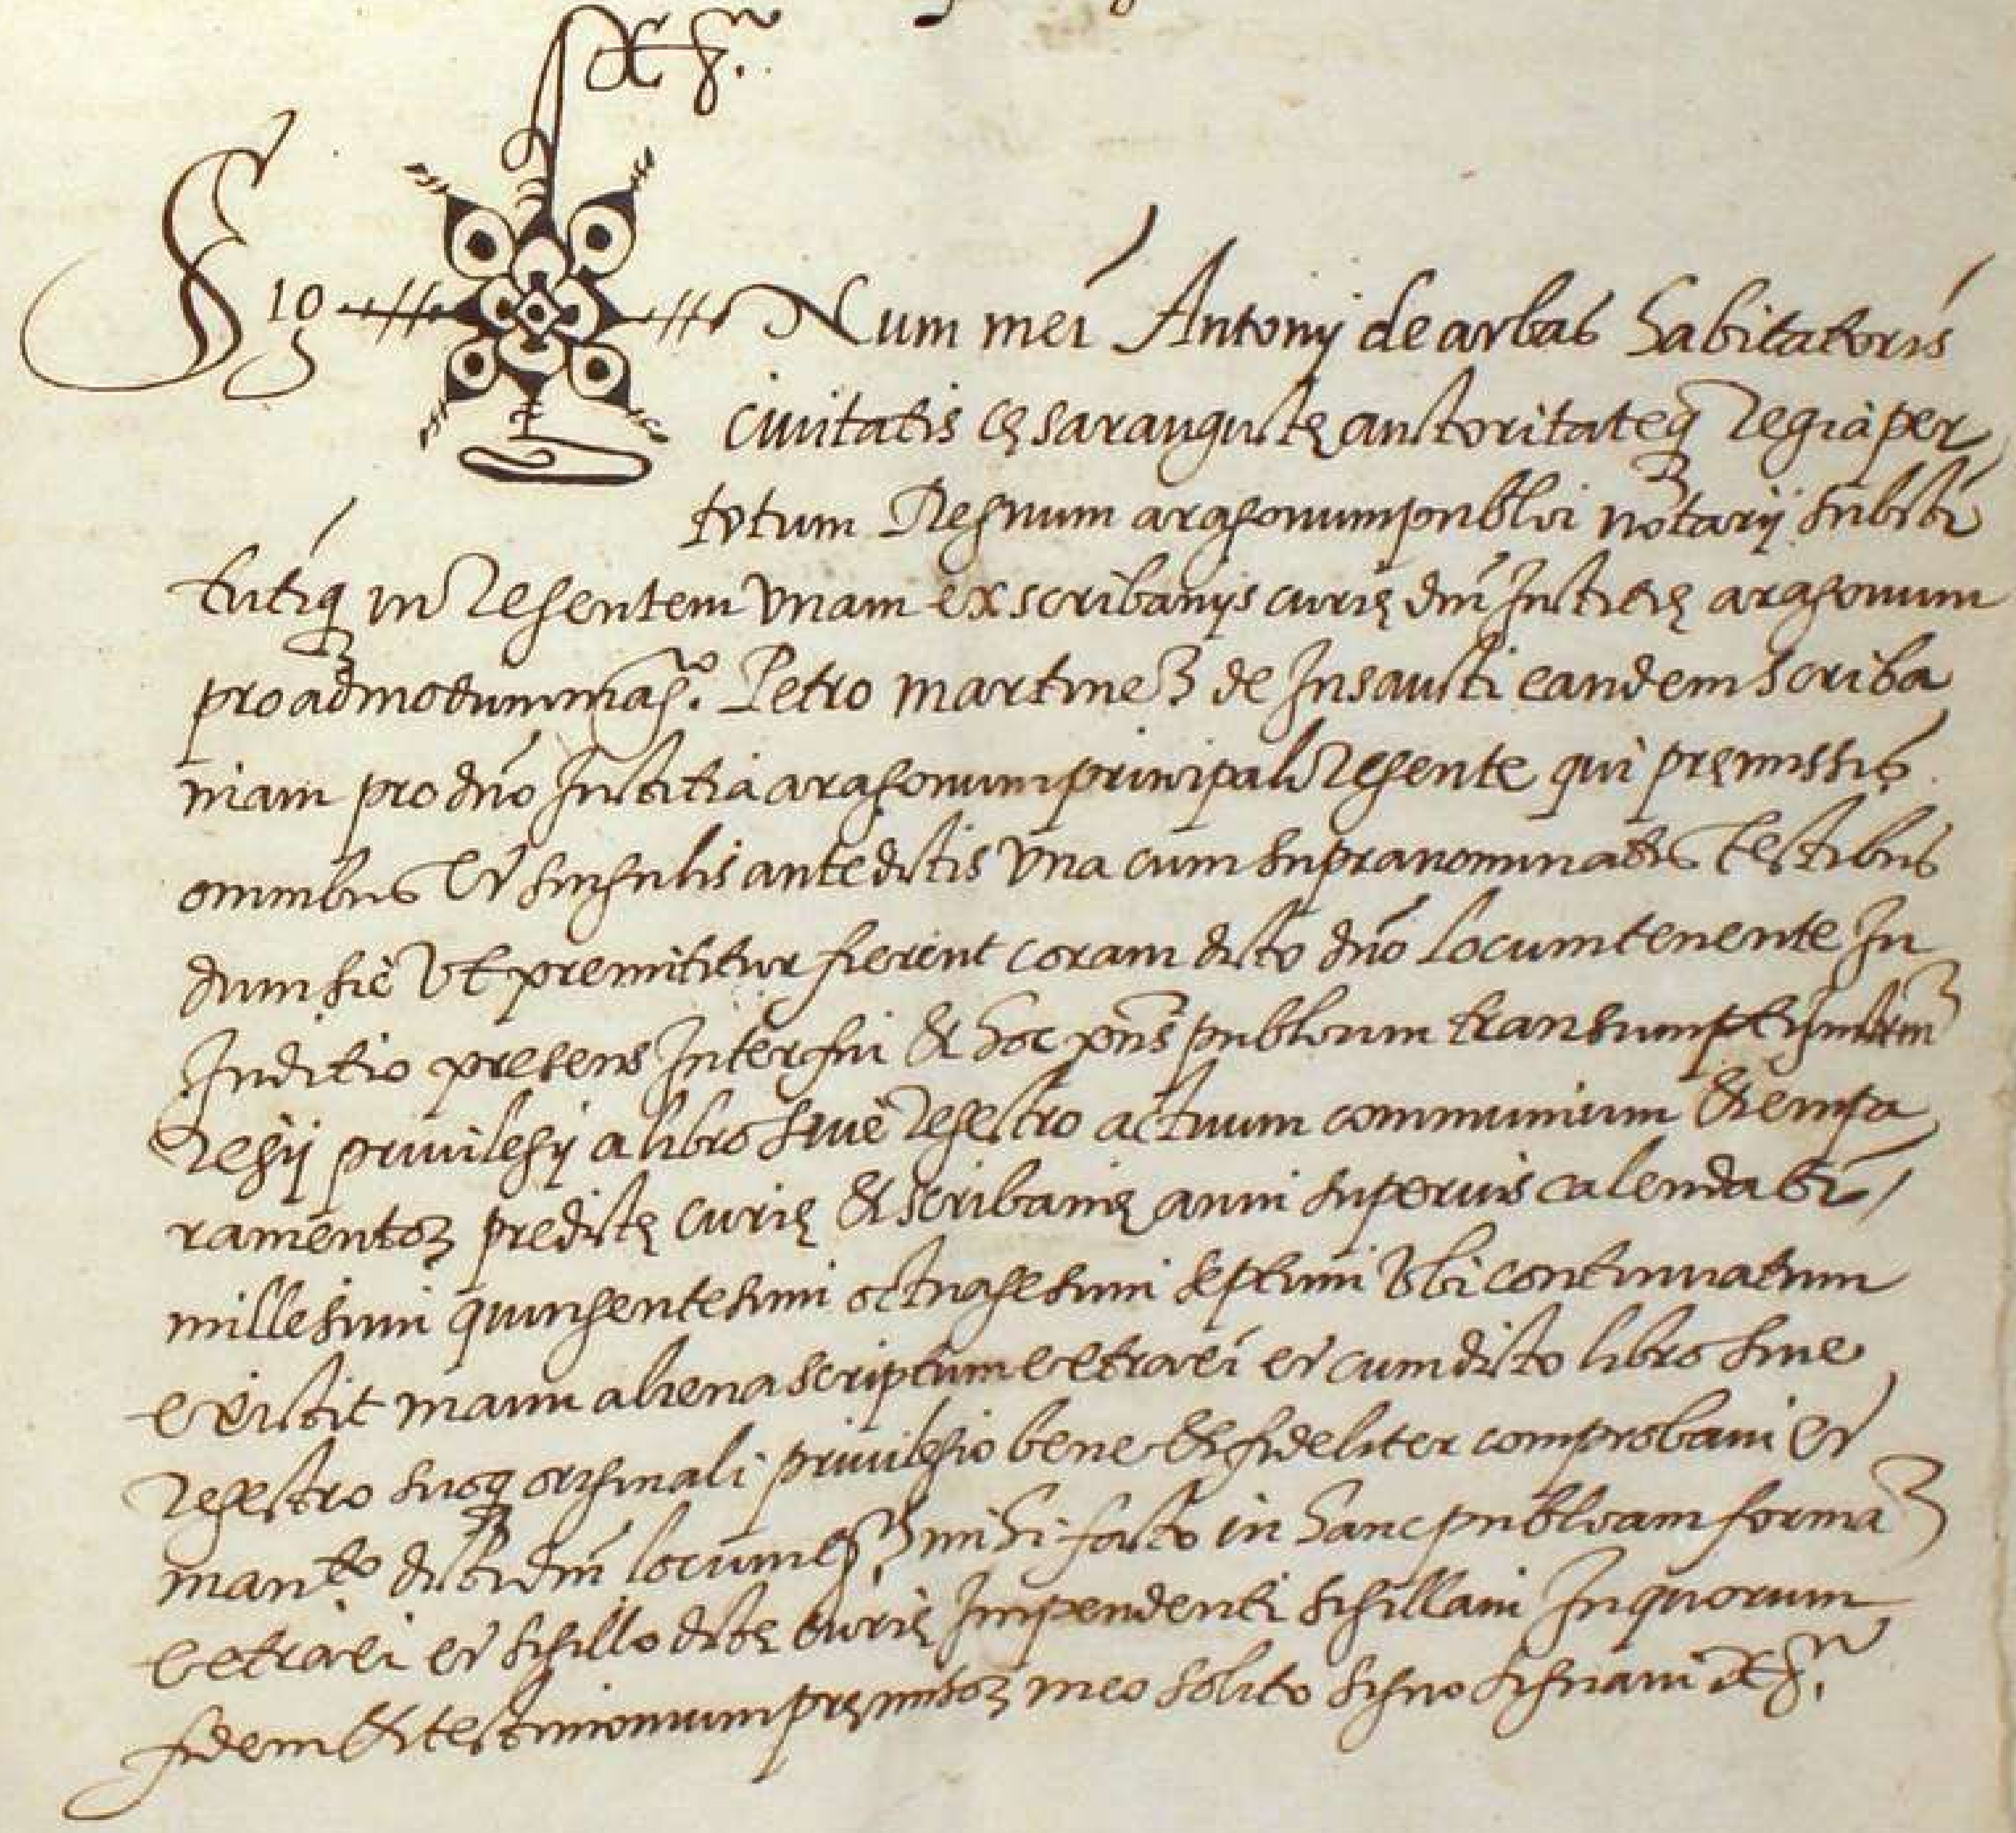 & c.ª
Sig Num mei Antonij de arbas habitatoris
ciuitatis cęsaraugustę auctoritateq3 regia per
totum Regnum aragonum publici notarij substi
tutiq3 in regentem vnam ex scribanijs curię dni Justitię aragonum
pro admodum mag.co Petro martinez de Insausti eandem scriba
niam pro dno Justitia aragonum principali regente qui pręmissis
omnibus et singulis antedictis vna cum supranominatis testibus
dum sic vt premititur fierent coram dicto dno locumtenente In
Juditio presens Interfui & hoc pñs publicum transumptum
regij priuilegij a libro siue regestro actuum communium & empa
ramentoȝ predictę curię & scribanię anni superius calendati
millesimi quingentesimi octuagesimi septimi vbi continuatum
existit manu aliena scriptum extraxi et cum dicto libro siue
regestro suoq3 originali priuilegio bene & fideliter comprobaui et
man.to dicti dni locumt.tis mihi facto in hanc publicam formã
extraxi et sigillo dictę curię Impendenti sigillaui In quorum
fidem & testimonium pręmissoȝ meo solito signo signaui & c.ª